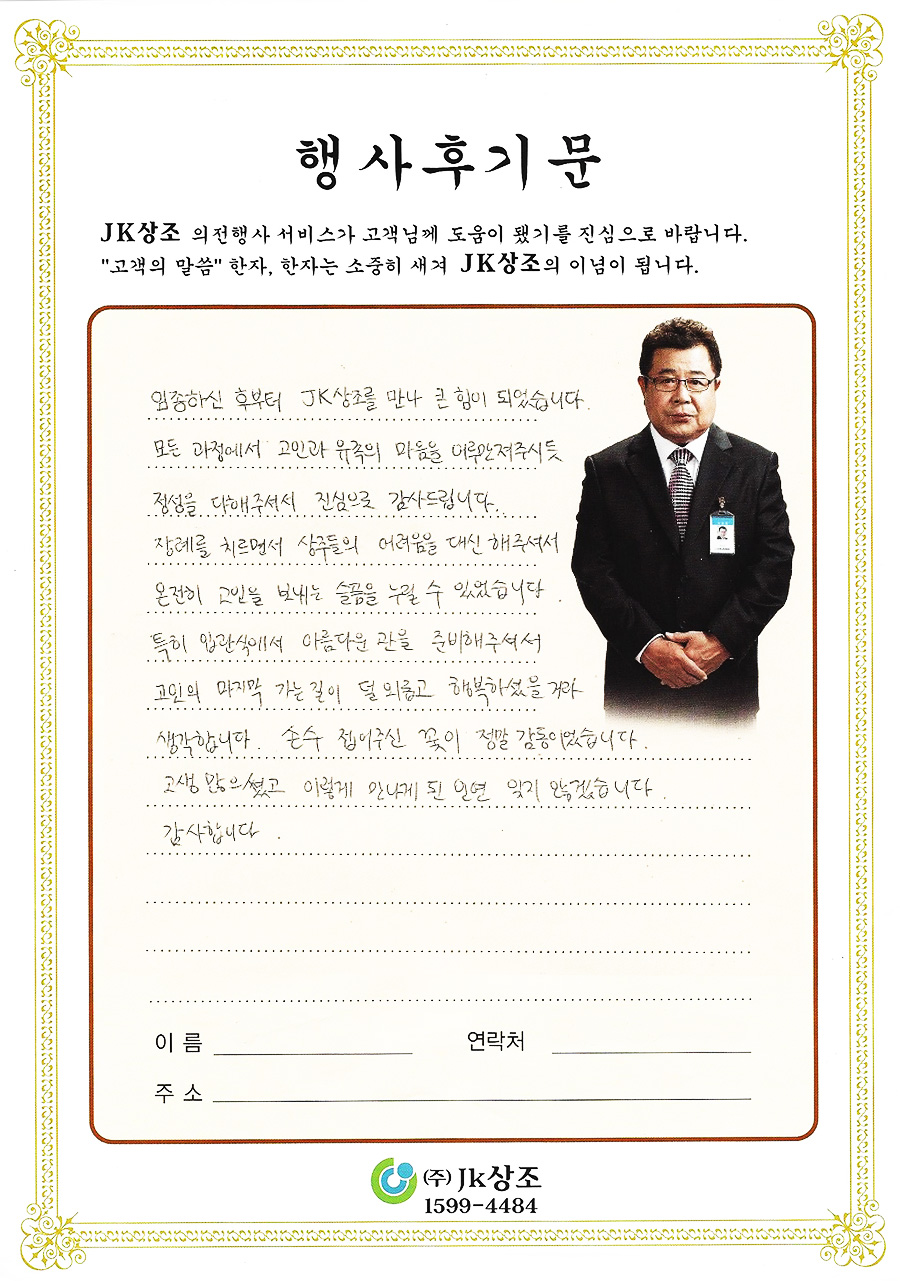 행사후기문
JK상조 의전행사 서비스가 고객님께 도움이 됐기를 진심으로 바랍니다.
"고객의 말씀" 한자, 한자는 소중히 새겨 JK상조의 이념이 됩니다.
임종하신 후부터 JK상조를 만나 큰 힘이 되었습니다.
모든 과정에서 고인과 유족의 마음을 어루만져주시듯
정성을 다해주셔서 진심으로 감사드립니다.
장례를 치르면서 상주들의 어려움을 대신 해주셔서
온전히 고인을 보내는 슬픔을 누릴 수 있었습니다.
특히 입관식에서 아름다운 관을 준비해주셔서
고인의 마지막 가는길이 덜 외롭고 행복하셨을 거라
생각합니다. 손수 접어주신 꽃이 정말 감동이었습니다.
고생 많으셨고 이렇게 만나게 된 인연 잊지 않겠습니다.
감사합니다.
이 름 연락처
주 소
(주) Jk상조
1599-4484